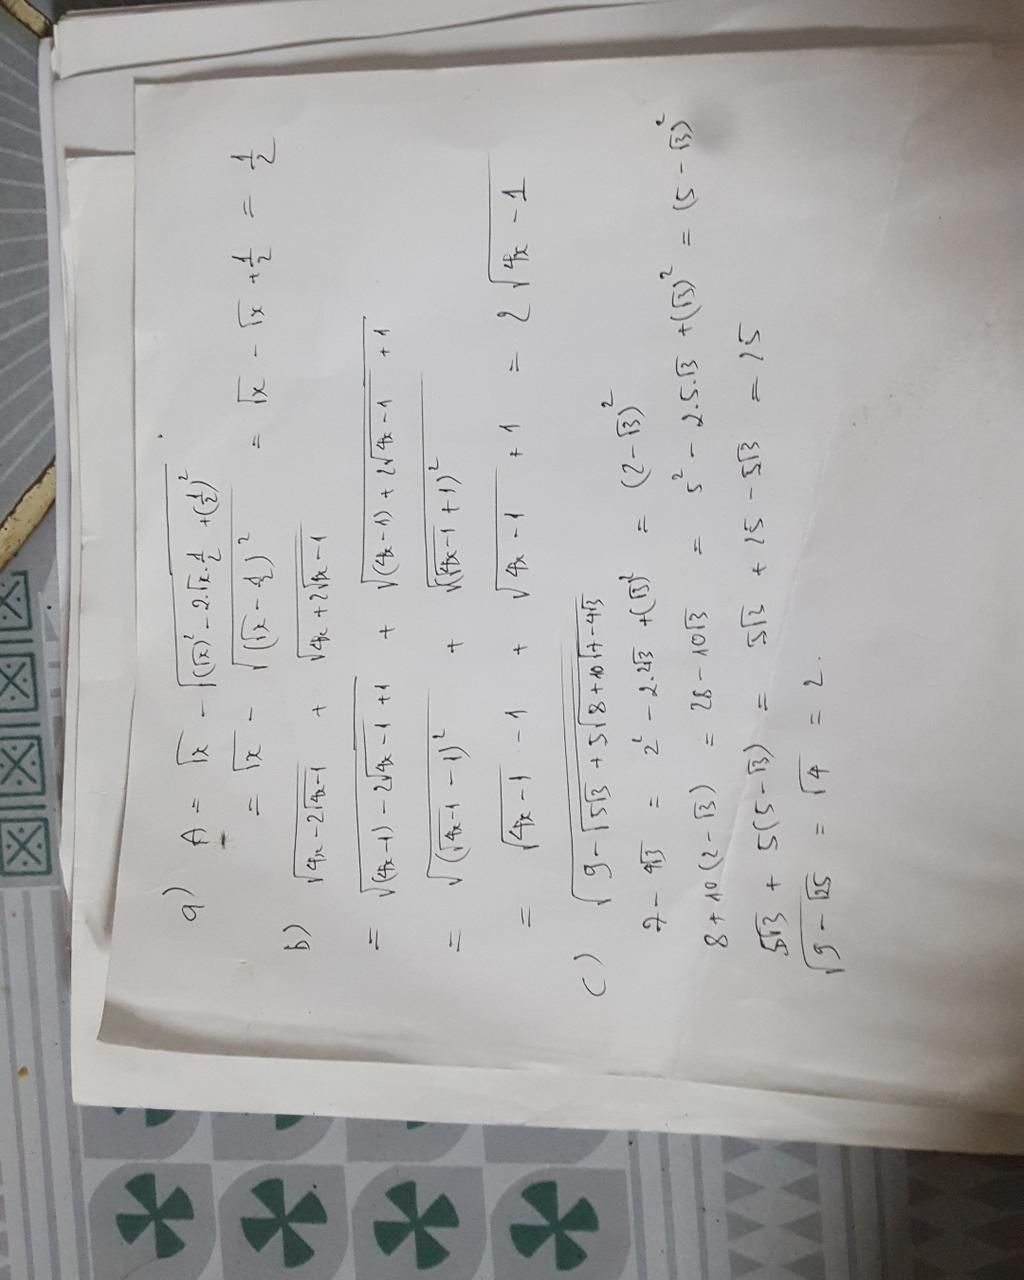 a) A = √x - √((√x)² - 2.√x.1/2 + (1/2)²)
= √x - √((√x - 1/2)²) = √x - √x + 1/2 = 1/2
b) √(4x - 2√(4x-1)) + √(4x + 2√(4x-1))
= √((4x-1) - 2√(4x-1) + 1) + √((4x-1) + 2√(4x-1) + 1)
= √((√(4x-1) - 1)²) + √((√(4x-1) + 1)²)
= √(4x-1) - 1 + √(4x-1) + 1 = 2√(4x-1)
c) √(9 - √(5√3 + 5√(8 + 10√(7-4√3))))
7 - 4√3 = 2² - 2.2√3 + (√3)² = (2-√3)²
8 + 10(2-√3) = 28 - 10√3 = 5² - 2.5.√3 + (√3)² = (5-√3)²
5√3 + 5(5-√3) = 5√3 + 25 - 5√3 = 25
√(9 - √25) = √4 = 2.